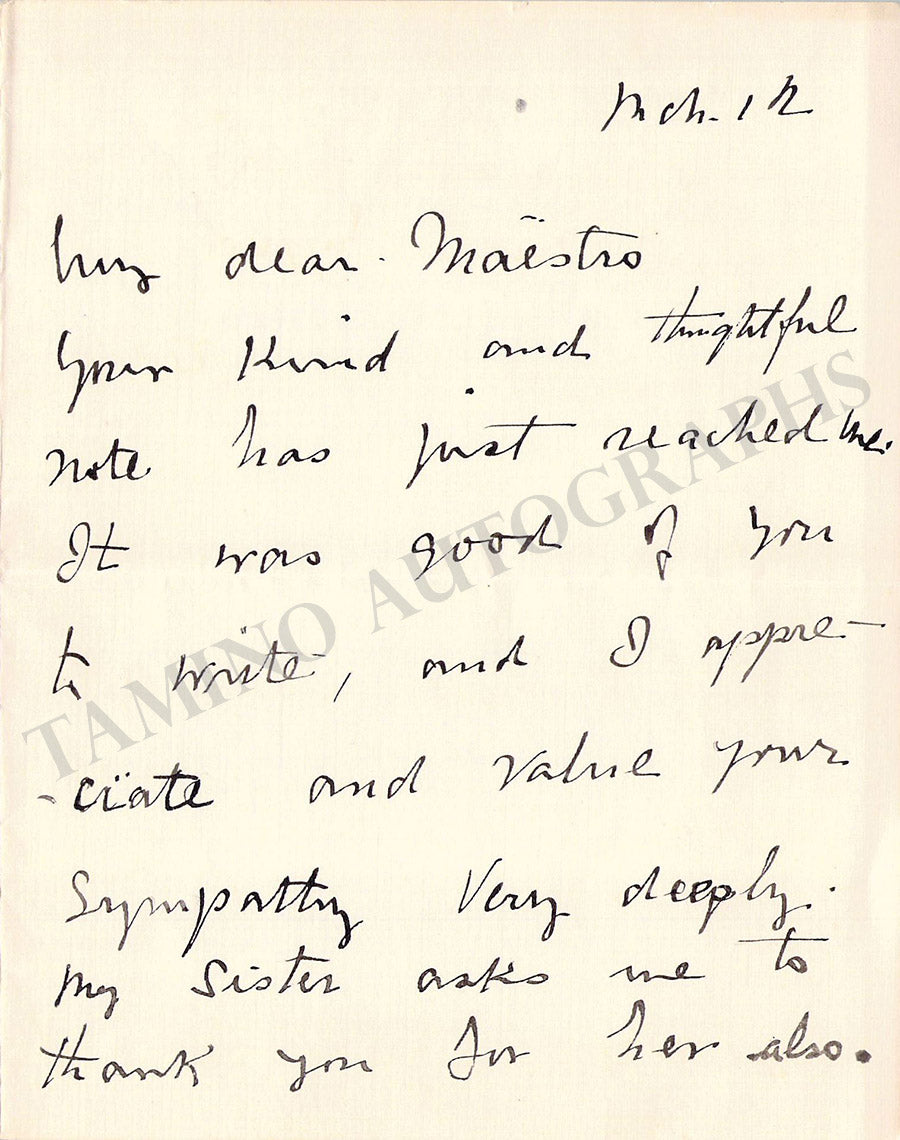 Mch. 12
My dear Maëstro
Your Kind and thoughtful
note has just reached me.
It was good of you
to write, and I appre-
-ciate and value your
Sympathy Very deeply.
My Sister asks me to
thank you for her also.
TAMINO AUTOGRAPHS